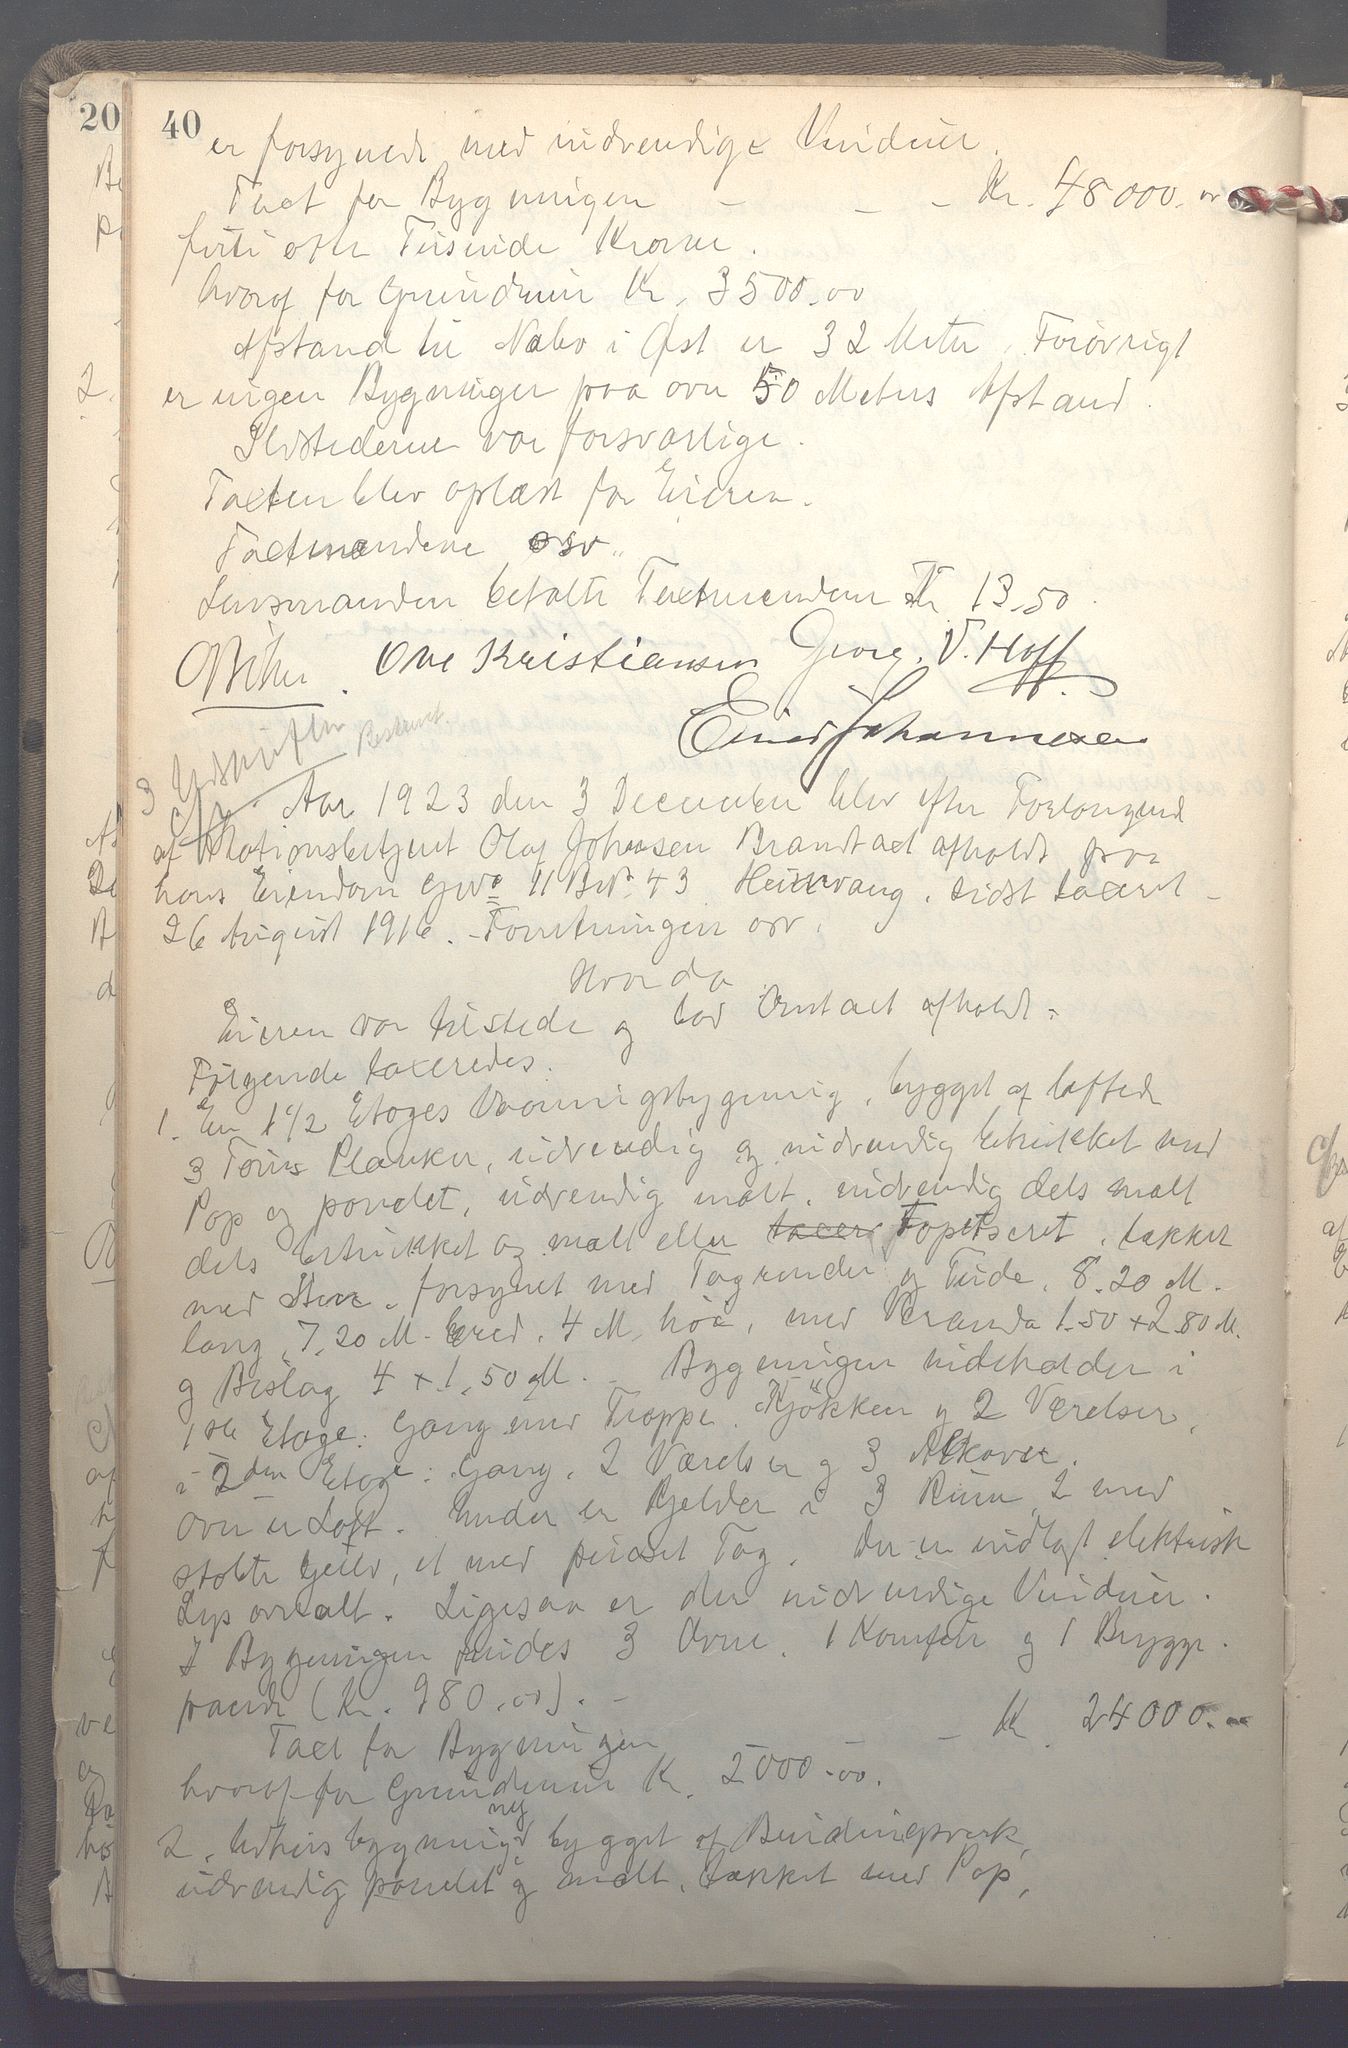 40
er forsynede med indvendige Vinduer.
Taxt for Bygningen - - - Kr. 48000.00
førti otte Tusinde Kroner.
hvoraf for Grundmur Kr. 3500.00
Afstand til Nabo i Øst er 32 Meter. Forøvrigt
er ingen Bygninger paa over 50 Meters Afstand.
Ildstederne var forsvarlige.
Taxten blev oplæst for Eieren.
Taxtmændene osv.
Lensmanden betalte Taxtmændene Kr 13.50.
Ove Kristiansen Georg. V. Hoff
Einar Johannesen
3 Udskrifter
Aar 1923 den 3 December blev efter Forlangende
af Stationsbetjent Olaf Johnsen Brandtaxt afholdt paa
hans Eiendom Gno 11 Bno 43 Heimvang, sidst taxeret
26 August 1916. - Forretningen osv.
Hvor da
Eieren var tilstede og bad Omtaxt afholdt.
Følgende taxeredes.
1. En 1 1/2 Etages Vaaningsbygning, bygget af laftede
3 Toms Planker, udvendig og indvendig betrukket med
Pap og panelet, udvendig malt, indvendig dels malt
dels betrukket og malt eller taxer Tapetseret, tækket
med Sten, forsynet med Tagrender og Tude, 8.20 M.
lang, 7.20 M. bred, 4 M. høi, med Veranda 1.50 x 2.80 M.
og Bislag 4 x 1.50 M. - Bygningen indeholder i
1ste Etage: Gang med Trappe, Kjøkken og 2 Værelser,
i 2den Etage: Gang, 2 Værelser og 3 Alkover.
Over er Loft. Under er Kjelder i 3 Rum, 2 med
støbte Gulv, et med pudset Tag. Der er indlagt elektrisk
Lys overalt. Ligesaa er der indvendige Vinduer.
I Bygningen findes 3 Ovne, 1 Komfur og 1 Brygge-
pande (Kr. 980.00). -
Taxt for Bygningen - - Kr 24000.-
hvoraf for Grundmur Kr. 2000.00.
2. Udhusbygning, ny bygget af Bindingsverk,
udvendig panelet og malt, tækket med Pap,